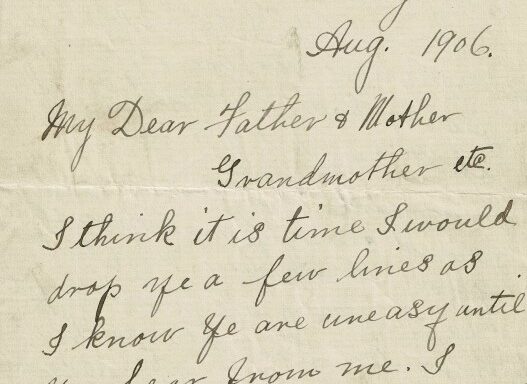 Aug. 1906.
My Dear Father & Mother
Grandmother etc.
I think it is time I would
drop ye a few lines as
I know Ye are uneasy until
hear from me. I